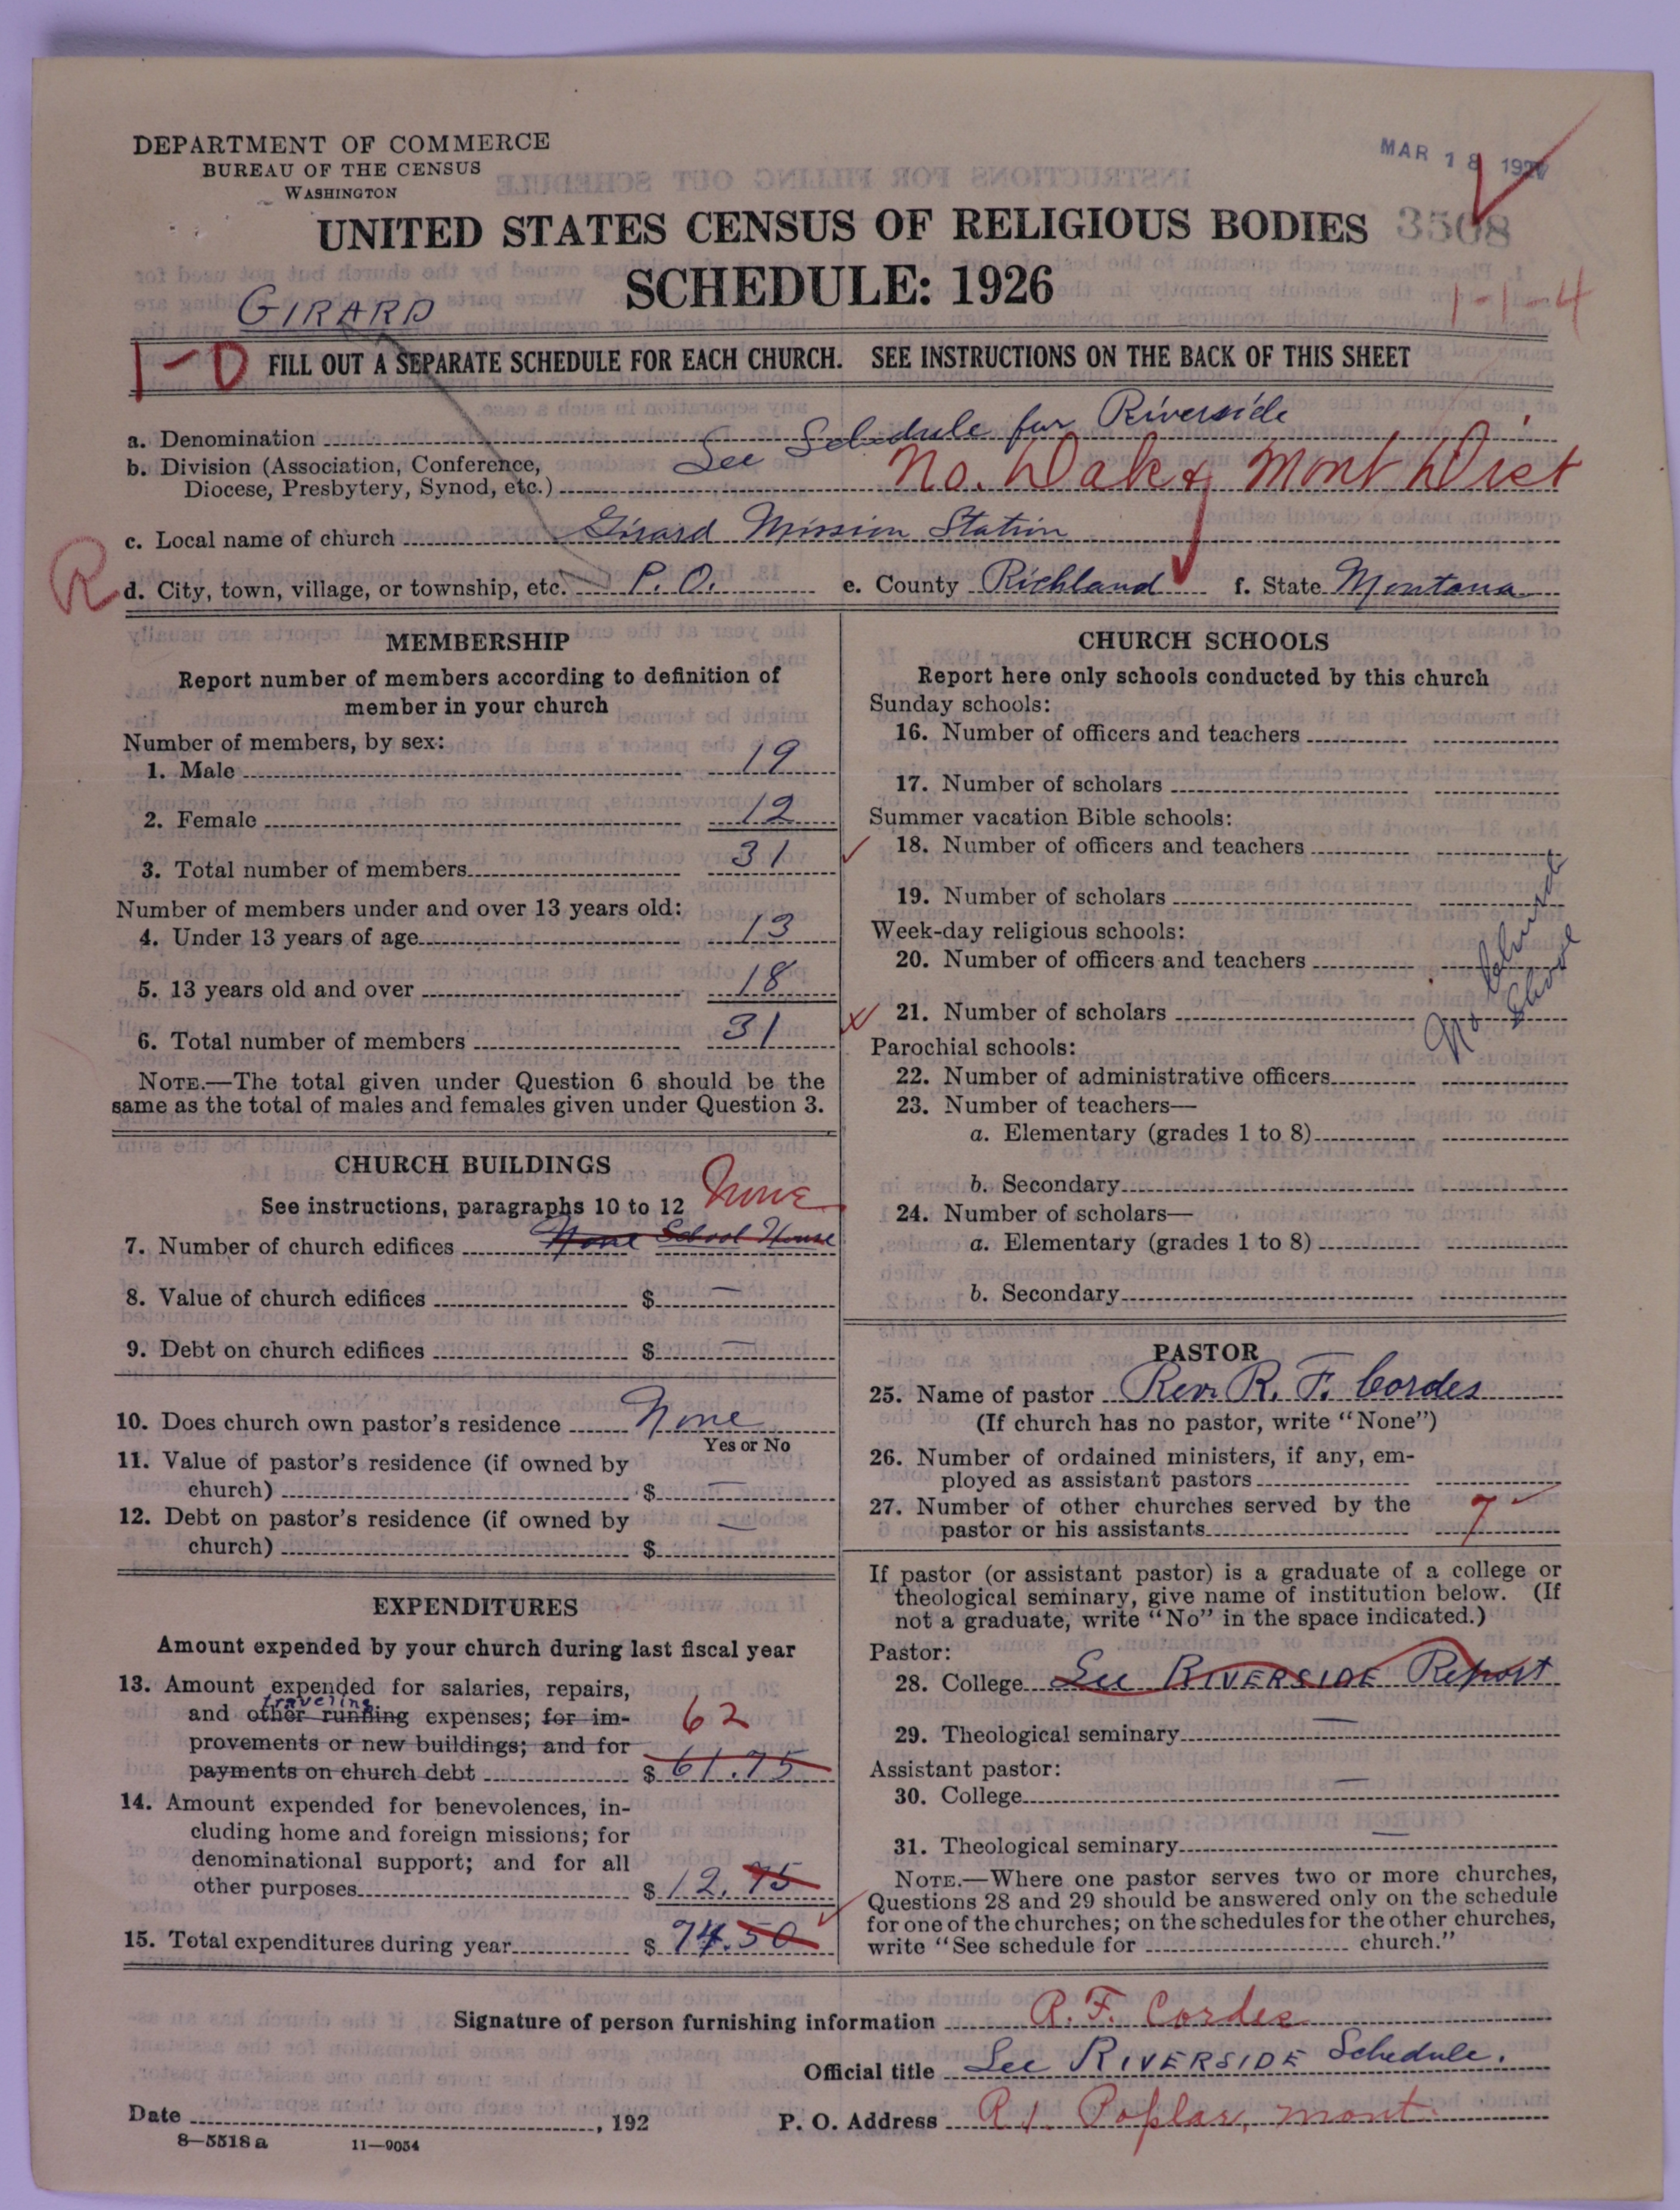 DEPARTMENT OF COMMERCE
BUREAU OF THE CENSUS
WASHINGTON
MAR 18 192
UNITED STATES CENSUS OF RELIGIOUS BODIES 3508
SCHEDULE: 1926
1-1-4
GIRARD
1-0 FILL OUT A SEPARATE SCHEDULE FOR EACH CHURCH. SEE INSTRUCTIONS ON THE BACK OF THIS SHEET
a. Denomination See Schedule for Riverside
b. Division (Association, Conference,
Diocese, Presbytery, Synod, etc.) No. Dak & Mont Dist
c. Local name of church Girard Mission Station
R d. City, town, village, or township, etc. P. O. e. County Richland f. State Montana
MEMBERSHIP
Report number of members according to definition of
member in your church
Number of members, by sex:
1. Male 19
2. Female 12
3. Total number of members 31
Number of members under and over 13 years old:
4. Under 13 years of age 13
5. 13 years old and over 18
6. Total number of members 31
NOTE.—The total given under Question 6 should be the
same as the total of males and females given under Question 3.
CHURCH BUILDINGS
See instructions, paragraphs 10 to 12 None
7. Number of church edifices None School House
8. Value of church edifices $ —
9. Debt on church edifices $ —
10. Does church own pastor's residence None
Yes or No
11. Value of pastor's residence (if owned by
church) $ —
12. Debt on pastor's residence (if owned by
church) $ —
EXPENDITURES
Amount expended by your church during last fiscal year
13. Amount expended for salaries, repairs,
traveling
and other running expenses; for im- 62
provements or new buildings; and for
payments on church debt $ 61.75
14. Amount expended for benevolences, in-
cluding home and foreign missions; for
denominational support; and for all
other purposes $ 12.75
15. Total expenditures during year $ 74.50
CHURCH SCHOOLS
Report here only schools conducted by this church
Sunday schools:
16. Number of officers and teachers
17. Number of scholars
Summer vacation Bible schools:
18. Number of officers and teachers
19. Number of scholars
Week-day religious schools:
20. Number of officers and teachers
21. Number of scholars
Parochial schools:
22. Number of administrative officers
23. Number of teachers—
a. Elementary (grades 1 to 8)
b. Secondary
24. Number of scholars—
a. Elementary (grades 1 to 8)
b. Secondary
PASTOR
25. Name of pastor Rev. R. F. Cordes
(If church has no pastor, write "None")
26. Number of ordained ministers, if any, em-
ployed as assistant pastors
27. Number of other churches served by the
pastor or his assistants 7
If pastor (or assistant pastor) is a graduate of a college or
theological seminary, give name of institution below. (If
not a graduate, write "No" in the space indicated.)
Pastor:
28. College See RIVERSIDE Report
29. Theological seminary —
Assistant pastor:
30. College —
31. Theological seminary —
NOTE.—Where one pastor serves two or more churches,
Questions 28 and 29 should be answered only on the schedule
for one of the churches; on the schedules for the other churches,
write "See schedule for church."
Signature of person furnishing information R. F. Cordes
Official title See RIVERSIDE Schedule.
Date , 192 P. O. Address R 1. Poplar, Mont.
8—5518 a 11—9054